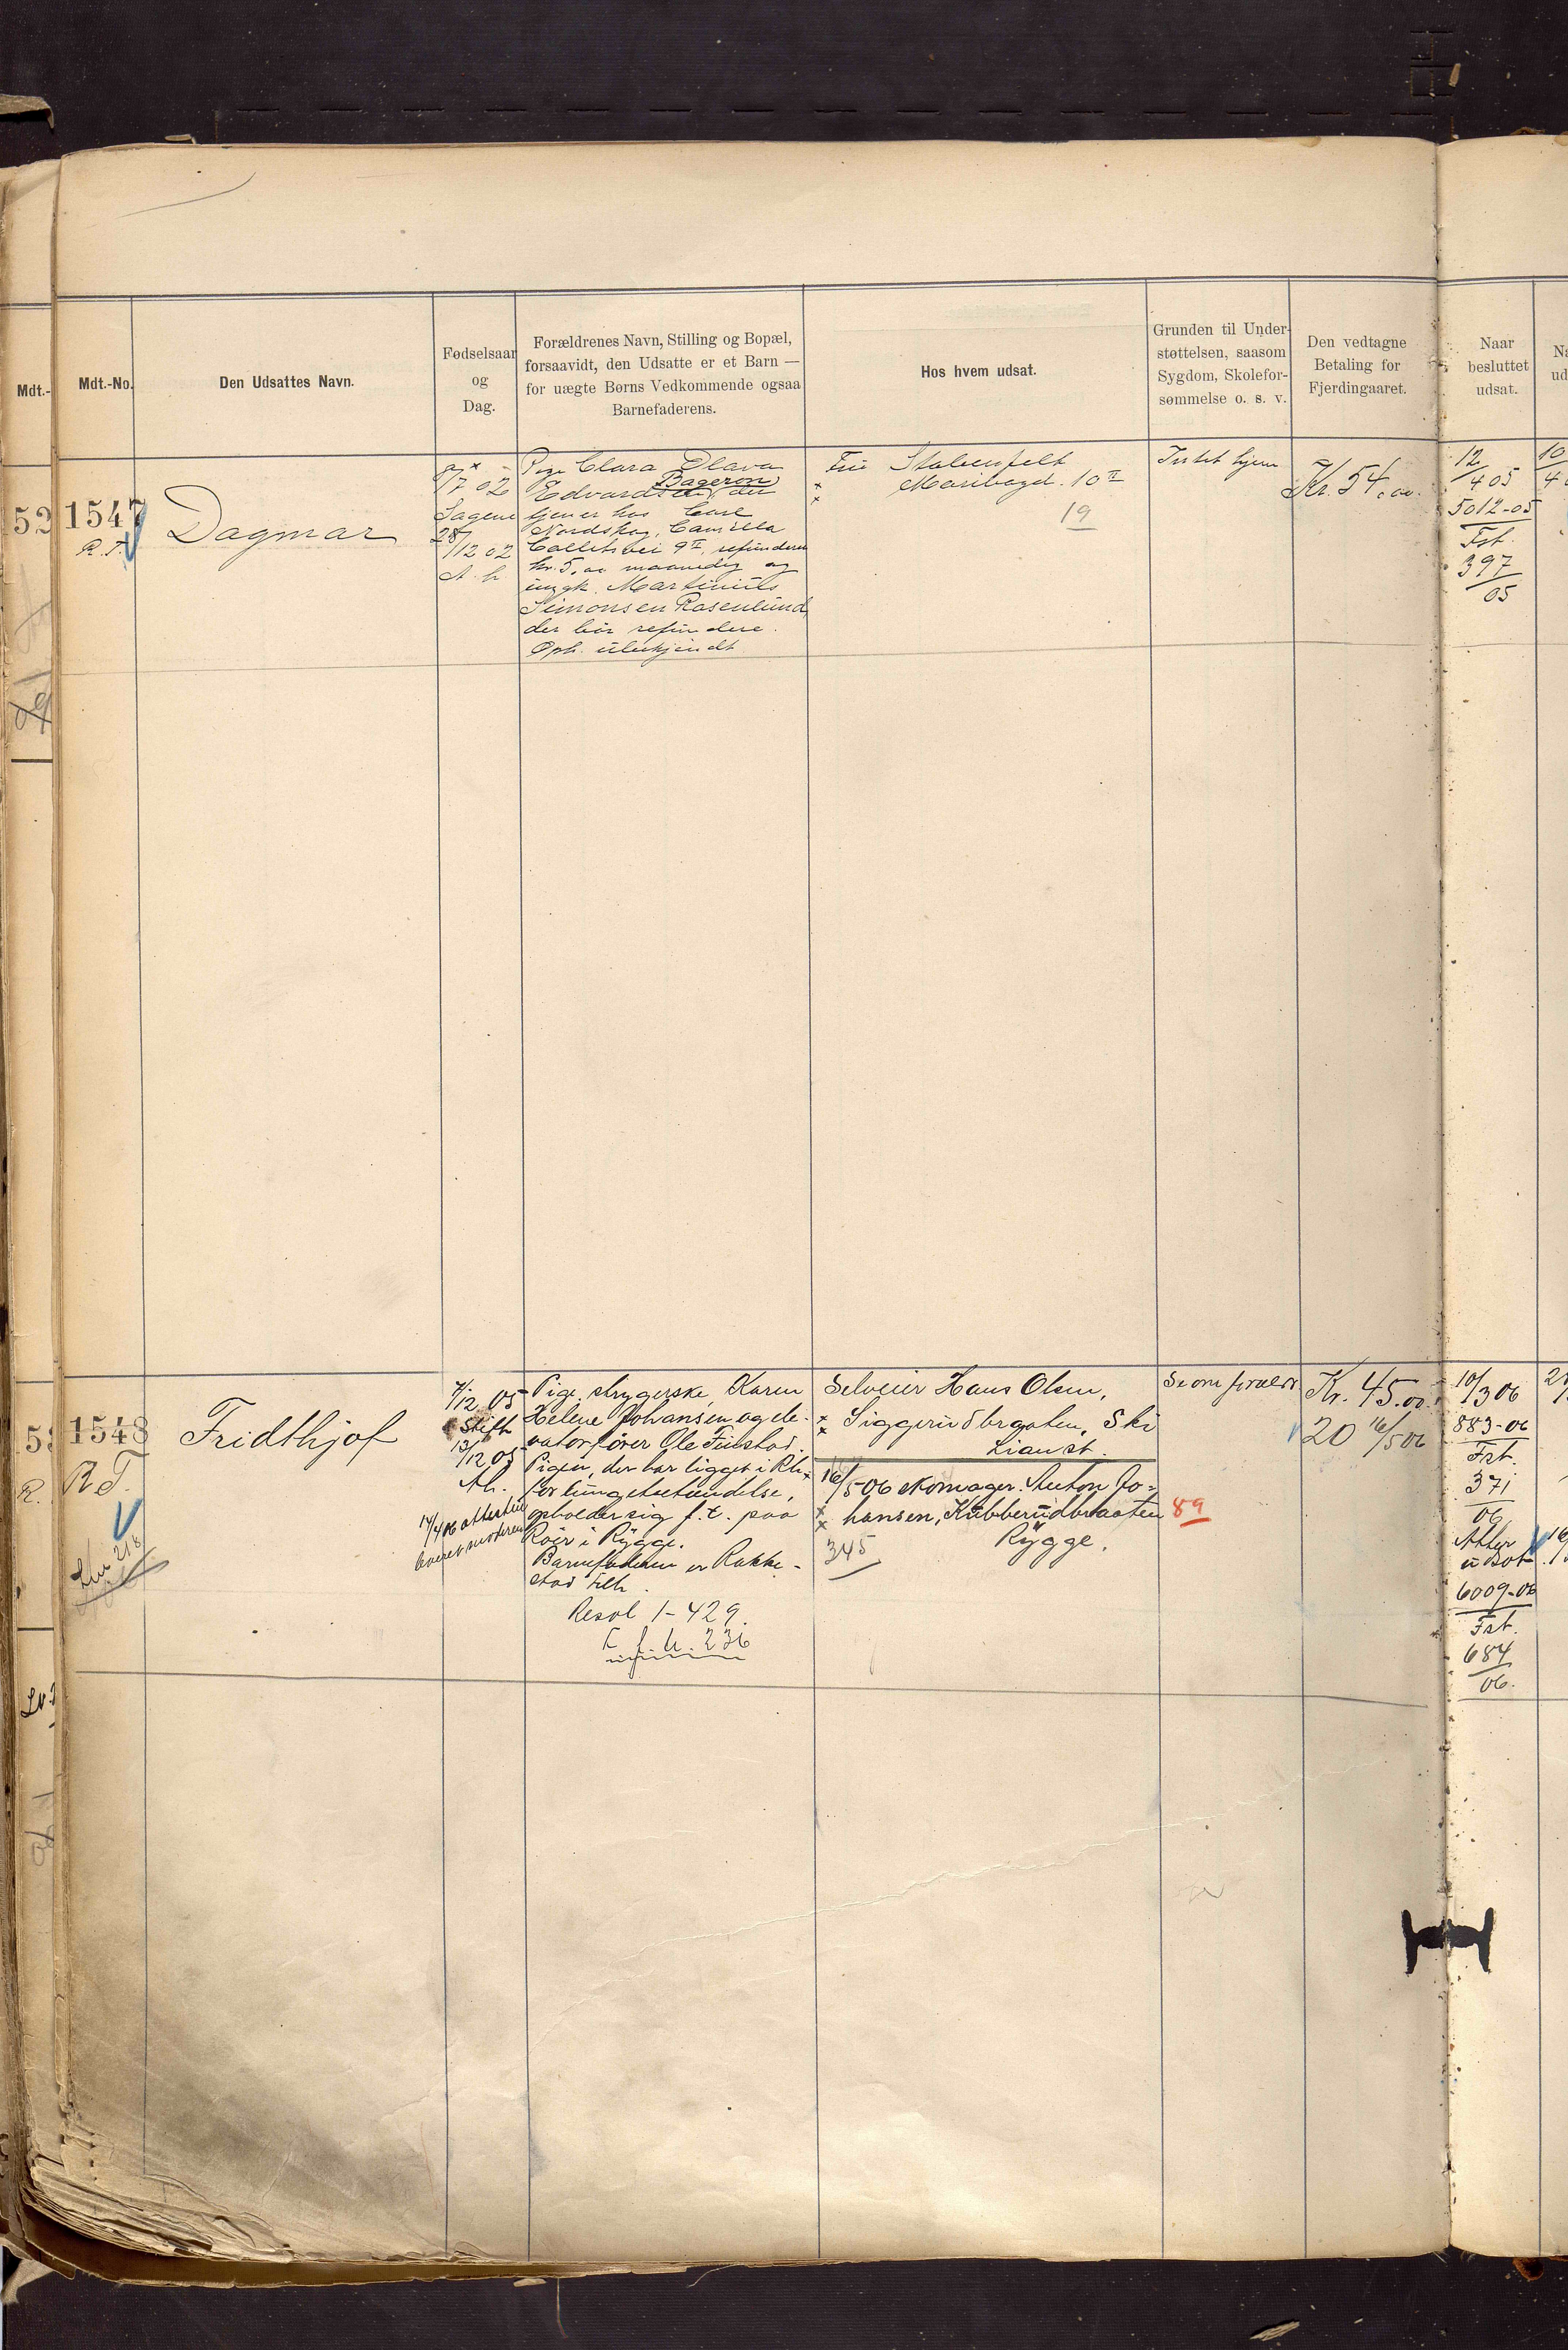 Mdt.-No.
Den Udsattes Navn.
Fødselsaar
og
Dag.
Forældrenes Navn, Stilling og Bopæl,
forsaavidt, den Udsatte er et Barn —
for uægte Børns Vedkommende ogsaa
Barnefaderens.
Hos hvem udsat.
Grunden til Under-
støttelsen, saasom
Sygdom, Skolefor-
sømmelse o. s. v.
Den vedtagne
Betaling for
Fjerdingaaret.
Naar
besluttet
udsat.
1547
R. T.
Dagmar
9/7 02
Sagene
28/12 02
A. h.
Pige Clara Olava
Bageron
Edvardsen, der
tjener hos Carl
Nordskog, Camilla
Colletts vei 9 II, refunderer
kr. 5.00 maanedlig og
ungk. Martinius
Simonsen Rosenlund,
der bør refundere.
Oph. ubekjendt
Frue Stabenfelt
Maribogd. 10 II
19
Intet hjem
Kr. 54.00.
12/4 05
5012-05
Fst.
397/05
1548
R T.
Fridthjof
7/12 05
Stift
13/12 05
Ah.
Pige, strygerske, Karen
Helene Johansen og ele-
vatorfører Ole Finstad.
Pigen, der har ligget i Rh.
for lungebetændelse,
opholder sig f. t. paa
Roer i Rygge.
Barnefaderen er Rakke-
stad tilh.
Resol 1-429.
236
Selveier Hans Olsen,
Siggerudbraaten, Ski
Lian st.
16/5 06 skomager Anton Jo-
hansen, Kubberudbraaten
Rygge.
345
89
Se om foræld
Kr. 45.00.
20 16/5 06
10/3 06
883-06
Fst.
371
06
Atter
6009-06
Fst.
684
06.